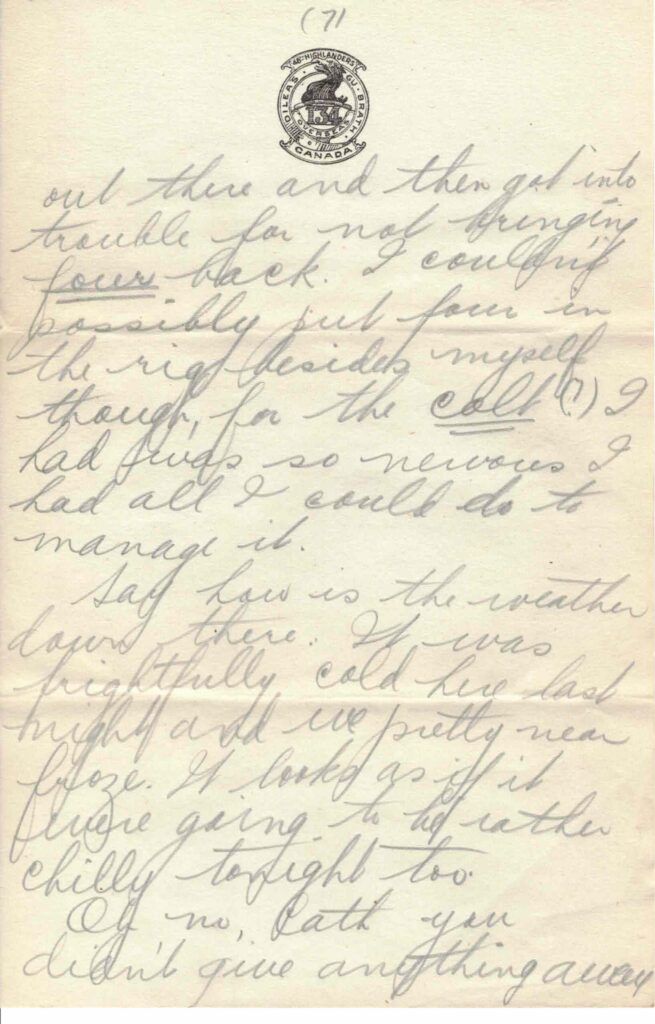 (7)
48TH HIGHLANDERS
DILEAS GU BRATH
134
OVERSEAS
CANADA
out there and then got into
trouble for not bringing
four back. I couldn't
possibly put four in
the rig besides myself
though, for the colt (?) I
had was so nervous I
had all I could do to
manage it.
Say how is the weather
down there. It was
frightfully cold here last
night and we pretty near
froze. It looks as if it
were going to be rather
chilly tonight too.
Oh no, Cath you
didn't give anything away